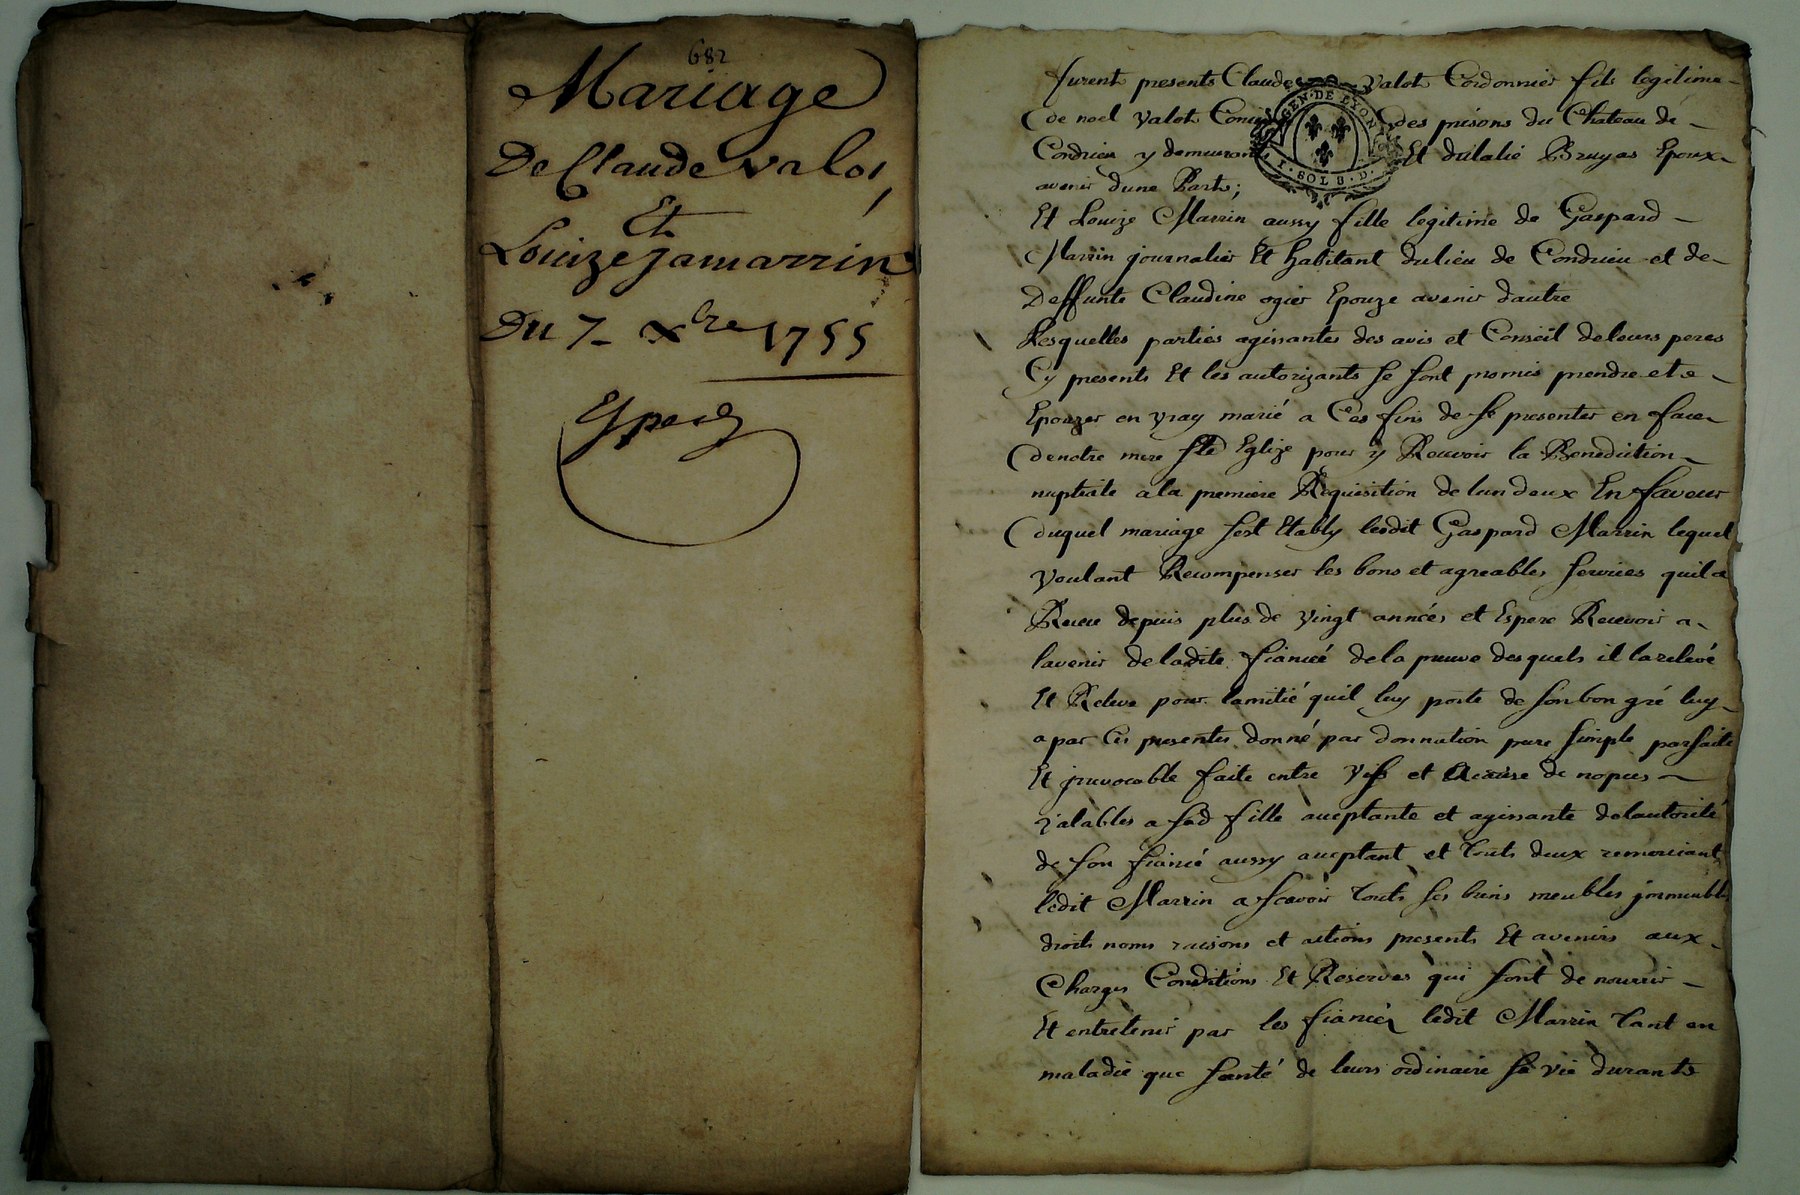 682
Mariage
De Claude valos
Et
Louize Jamarrin
Du 7 xbre 1755
furent presents Claude valot Cordonnier fils legitime
de noel valot des prisons du Chateau de
Condrieu y demeurant Et Bruyas Epoux
avenir dune Part;
GEN. DE LYON
1. SOL 8. D.
Et Louize Marrin aussy fille legitime de Gaspard
Marrin journalier Et habitant du lieu de Condrieu et de
Deffunte Claudine ogier Epouze avenir dautre
Lesquelles parties agissantes des avis et Conseil de leurs peres
Cy presents Et les autorizants se sont promis prendre et
Epouzer en vray marié a Ces fins de se presenter en face
de notre mere ste Eglize pour y Recevoir la Benediction
nuptiale a la premiere Requisition de lun deux En faveur
duquel mariage sest Etably ledit Gaspard Marrin lequel
voulant Recompenser les bons et agreables services quil a
Receu depuis plus de vingt années et Espere Recevoir a
lavenir de ladite fiancée de la preuve desquels il la relevé
Et Releve pour lamitié quil luy porte de son bon gré luy
a par Ces presentes donné par donnation pure simple parfaite
Et jrrevocable faite entre vifs et a Cause de nopces
a sad fille acceptante et agissante de lautorité
de son fiancé aussy acceptant et touts deux remerciant
ledit Marrin a scavoir touts ses biens meubles jmmeubles
droits noms raisons et actions presents Et avenirs aux
Charges Conditions Et Reserves qui sont de nourrir
Et entretenir par les fiancés ledit Marrin tant en
maladie que santé de leurs ordinaire sa vie durant